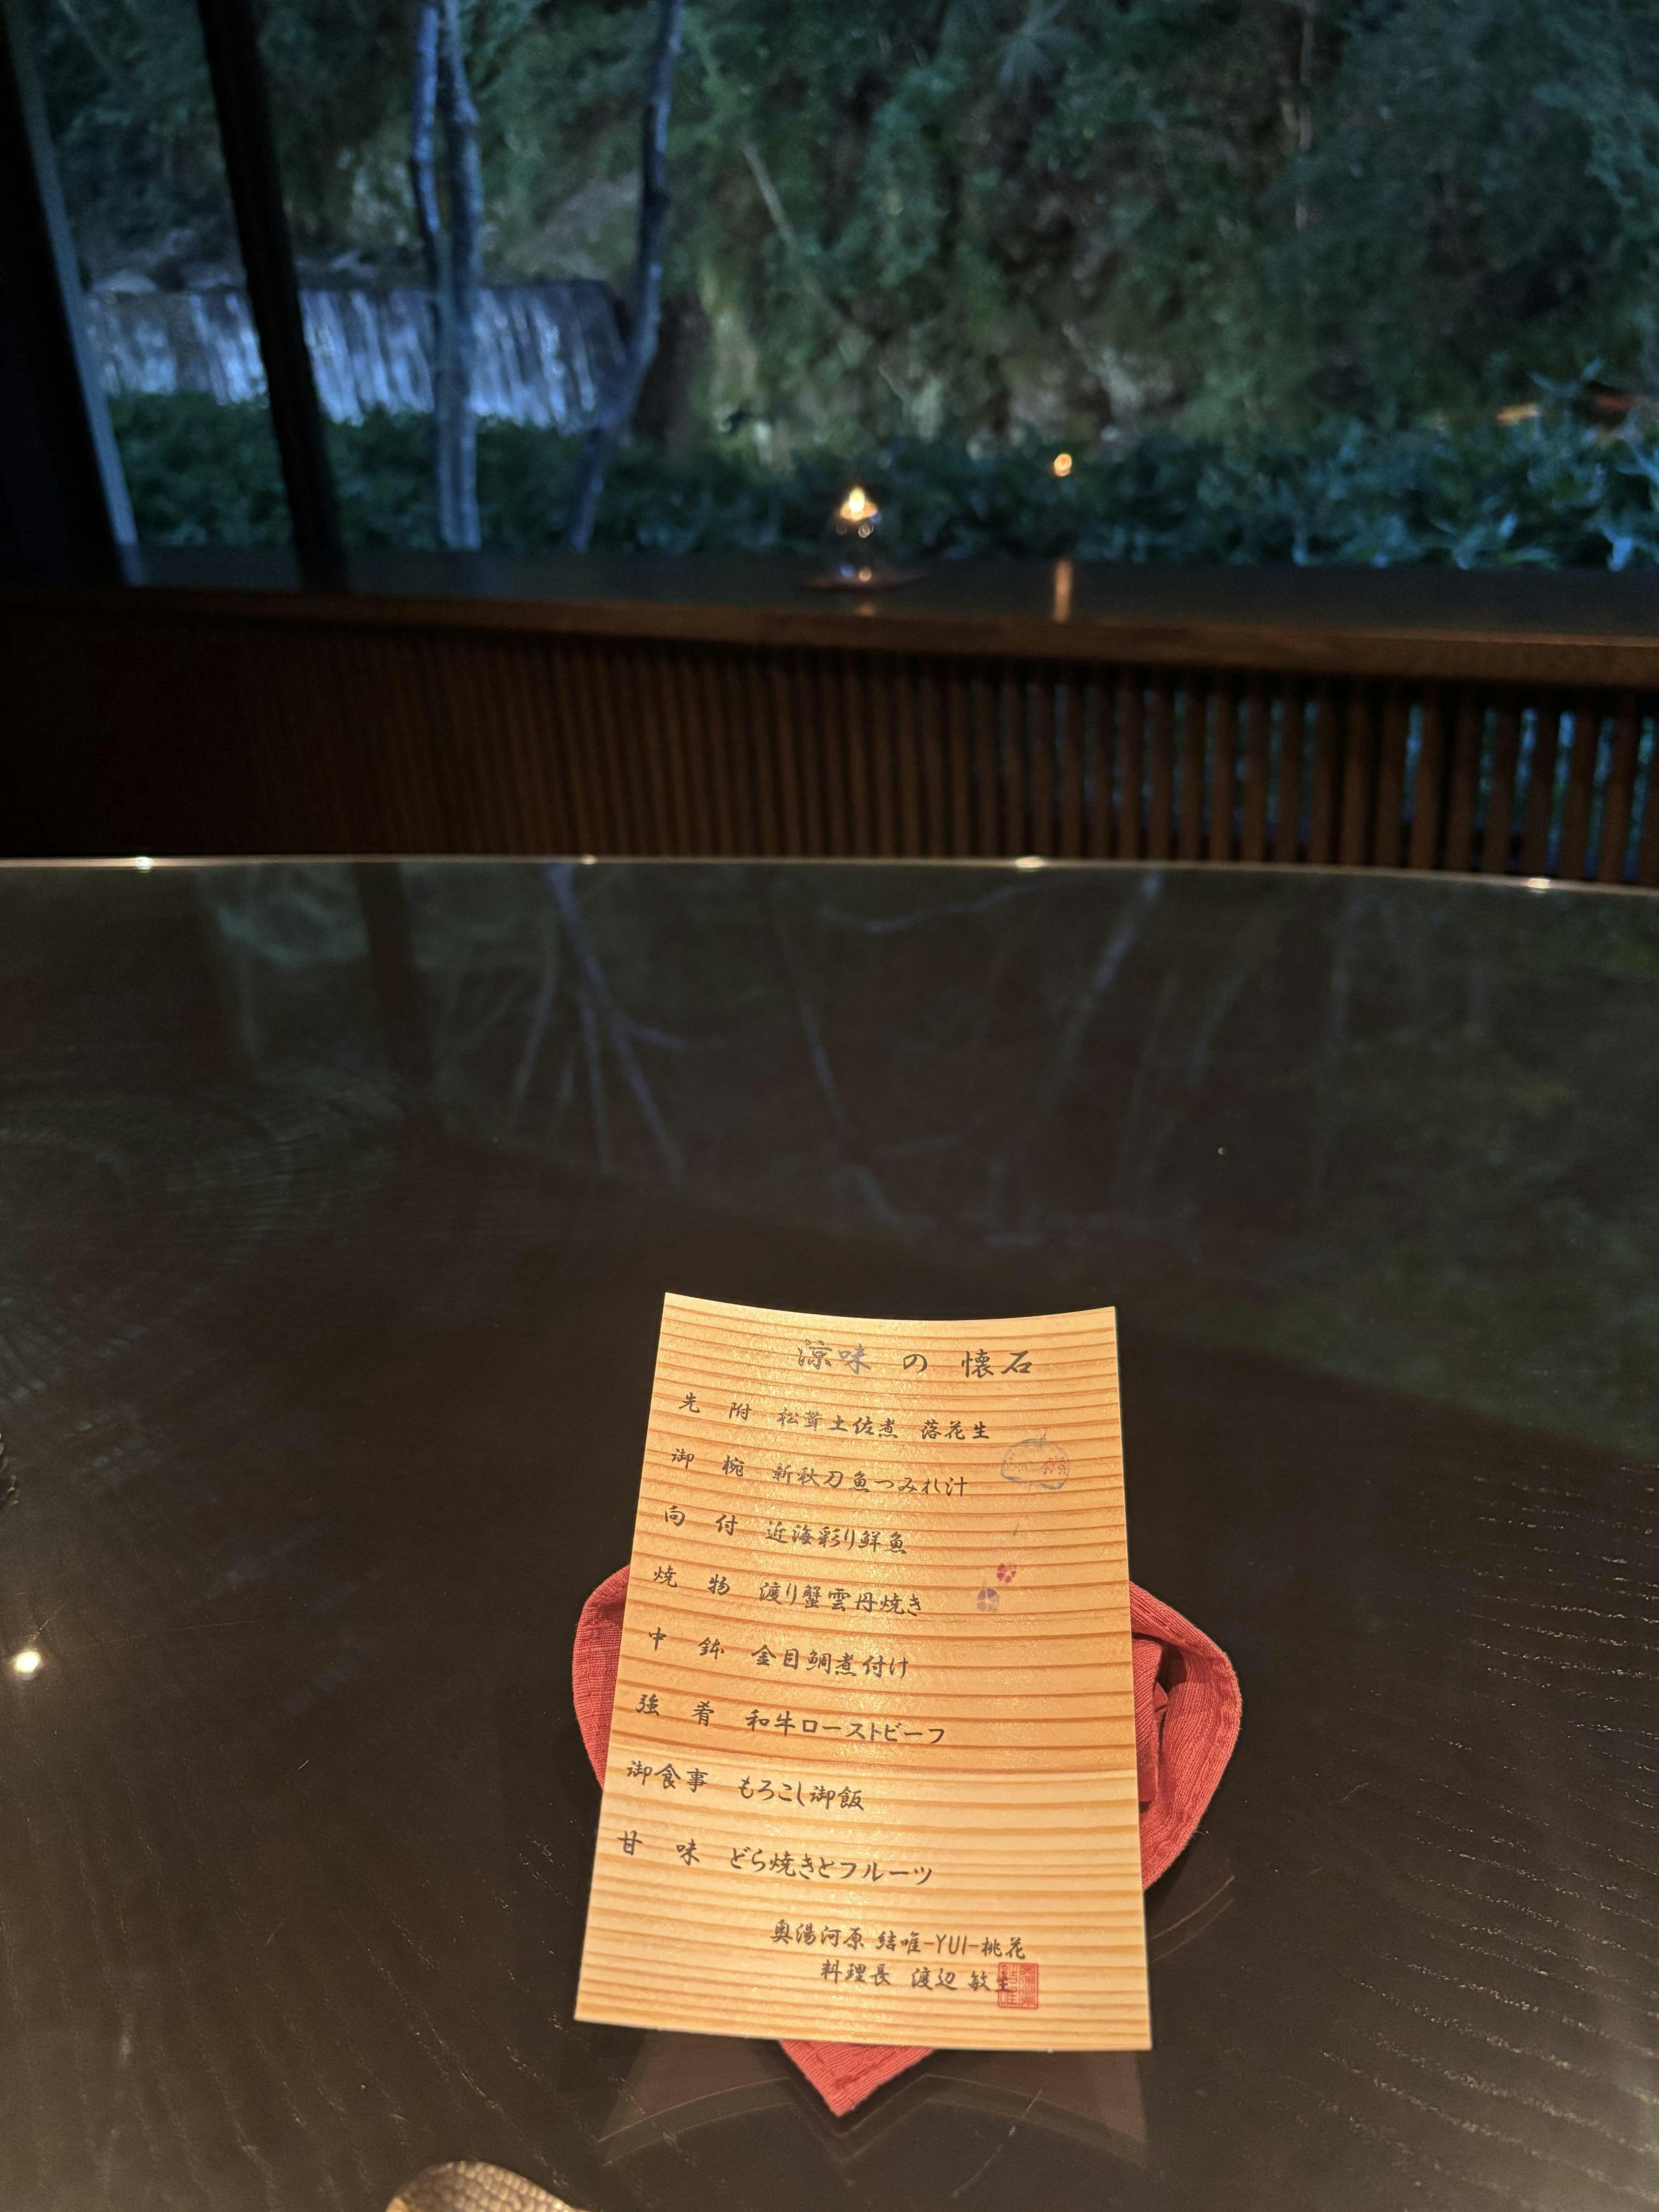 涼味の懐石
先附 松茸土佐煮 落花生
御椀 新秋刀魚つみれ汁
向付 近海彩り鮮魚
焼物 渡り蟹雲丹焼き
中鉢 金目鯛煮付け
強肴 和牛ローストビーフ
御食事 もろこし御飯
甘味 どら焼きとフルーツ
奥湯河原 結唯-YUI-桃花
料理長 渡辺 敏生